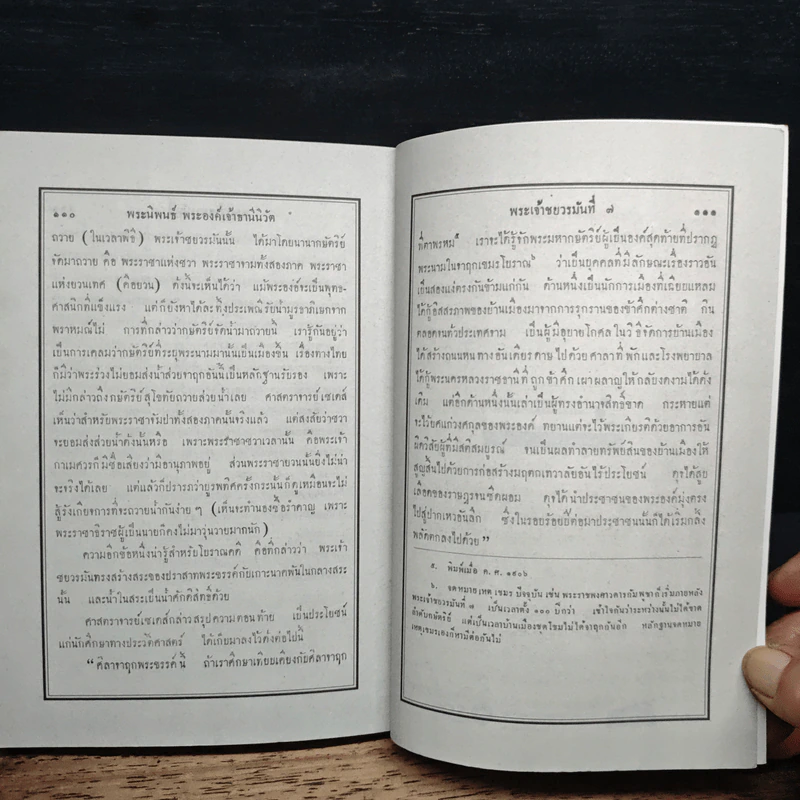 ๑๑๐ พระนิพนธ์ พระองค์เจ้าธานีนิวัต
ถวาย (ในเวลาพิธี) พระเจ้าชยวรมันนั้น ได้มาโดยนานากษัตริย์
จัดมาถวาย คือ พระราชาแห่งชวา พระราชาจามทั้งสองภาค พระราชา
แห่งยวนเทศ (คือยวน) ดั่งนี้จะเห็นได้ว่า แม้พระองค์จะเป็นพุทธ-
ศาสนิกที่แข็งแรง แต่ก็ยังหาได้ละทิ้งประเพณีรับน้ำมูรธาภิเษกจาก
พราหมณ์ไม่ การที่กล่าวว่ากษัตริย์จัดน้ำมาถวายนี้ เรารู้กันอยู่ว่า
เป็นการเคลมว่ากษัตริย์ที่ระบุพระนามมานั้นเป็นเมืองขึ้น เรื่องทางไทย
ก็มีว่าพระร่วงไม่ยอมส่งน้ำส่วยจารุกอันนี้เป็นหลักฐานรับรอง เพราะ
ไม่มีกล่าวถึงกษัตริย์สุโขทัยถวายส่วยน้ำเลย ศาสตราจารย์เซเดส์
เห็นว่าสำหรับพระราชาจัมปาทั้งสองภาคนั้นจริงแล้ว แต่สงสัยว่าชวา
จะยอมส่งส่วยน้ำดั่งนั้นหรือ เพราะพระราชาชวาเวลานั้น คือพระเจ้า
กาเมศวรก็มีชื่อเสียงว่ามีอานุภาพอยู่ ส่วนพระราชายวนนั้นยิ่งไม่น่า
จะจริงได้เลย แต่แล้วก็ปรารภว่ายูรพทัศครั้งกระนั้นก็ดูเหมือนจะไม่
สู้รังเกียจการที่จะถวายน้ำกันง่าย ๆ (เห็นจะทำนองซื้อรำคาญ เพราะ
พระราชาธิราชผู้เป็นนายก็คงไม่มาวุ่นวายมากนัก)
ความอีกข้อหนึ่งน่ารู้สำหรับโบราณคดี คือที่กล่าวว่า พระเจ้า
ชยวรมันทรงสร้างสระของปราสาทพระขรรค์กับเกาะนาคพันในกลางสระ
นั้น และน้ำในสระเป็นน้ำศักดิสิทธิ์ด้วย
ศาสตราจารย์เซเดส์กล่าวสรุปความตอนท้าย เป็นประโยชน์
แก่นักศึกษาทางประวัติศาสตร์ ได้เกียมาลงไว้ดั่งต่อไปนี้
“ศิลาจารุกพระขรรค์นี้ ถ้าเราศึกษาเทียบเคียงกับศิลาจารุก
พระเจ้าชยวรมันที่ ๗ ๑๑๑
ที่ตาพรหม๕ เราจะได้รู้จักพระมหากษัตริย์ผู้เป็นองค์สุดท้ายที่ปรากฏ
พระนามในจารุกเขมรโบราณ๖ ว่าเป็นบุคคลที่มีลักษณะเรื่องราวอัน
เป็นสองแง่ตรงกันข้ามแก่กัน ด้านหนึ่งเป็นนักการเมืองที่เฉียบแหลม
ได้กู้อิสสรภาพของบ้านเมืองมาจากการรุกรานของข้าศึกต่างชาติ กิน
ตลอดจนตัวประเทศจาม เป็นผู้มีอุบายโกศลในวิธีจัดการบ้านเมือง
ได้สร้างถนนหนทางอันเดียรดาษไปด้วยศาลาที่พักและโรงพยาบาล
ได้กู้พระนครหลวงราชธานีที่ถูกข้าศึกเผาผลาญให้กลับงดงามได้ดัง
เดิม แต่อีกด้านหนึ่งนั้นเล่าเป็นผู้ทรงอำนาจสิทธิ์ขาด กระหายแต่
จะไว้ยศแก่วงศกุลของพระองค์ ทยานแต่จะไว้พระเกียรติด้วยอาการอัน
ผิดวิสัยผู้ที่มีสติสมบูรณ์ จนเป็นผลทำลายทรัพย์สินของบ้านเมืองให้
สูญสิ้นไปด้วยการก่อสร้างมฤตกเทวาลัยอันไร้ประโยชน์ ดุจได้สูบ
เลือดของราษฎรจนซีดผอม ดุจได้นำประชาชนของพระองค์มุ่งตรง
ไปสู่ปากเหวอันลึก ซึ่งในรอยร้อยปีต่อมาประชาชนนั้นก็ได้เริ่มกลิ้ง
พลัดตกลงไปด้วย”
๕. พิมพ์เมื่อ ค. ศ. ๑๙๐๖
๖. จดหมายเหตุเขมรปัจจุบัน เช่น พระราชพงศาวดารกัมพูชาก็เริ่มภายหลัง
พระเจ้าชยวรมันที่ ๗ เป็นเวลาตั้ง ๑๑๐ ปีกว่า เข้าใจกันว่าระหว่างนั้นไม่ได้ขาด
ลำดับกษัตริย์ แต่เป็นเวลาบ้านเมืองชุลโมนไม่ได้จารุกกันอีก หลักฐานจดหมาย
เหตุเขมรเองก็หามีต่อกันไม่